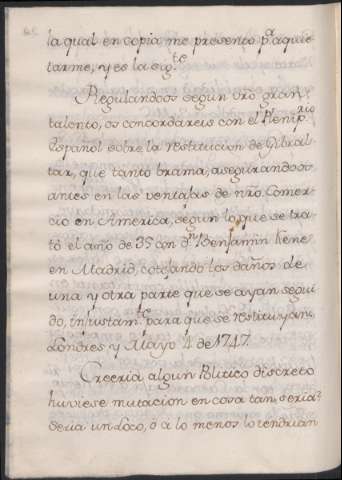 la qual en copia me presentó pª. aquie
tarme, y es la sigte
Regulandoos segun vro gran
talento, os concordareis con el Plenipºrio
Español sobre la restitucion de Gibral
tar, que tanto brama, asegurandoos
antes en las ventajas de nro. Comer
cio en America, segun lo que se tra
tó el año de 35 con dn. Benjamin Kene
en Madrid, cotejando los daños de
una y otra parte que se ayan segui
do, injustamte. para que se restituyan.
Londres y Mayo 4 de 1747.
Creeria algun Politico discreto
huviese mutacion en cosa tan seria?
Seria un Loco, ó a lo menos lo tendrian